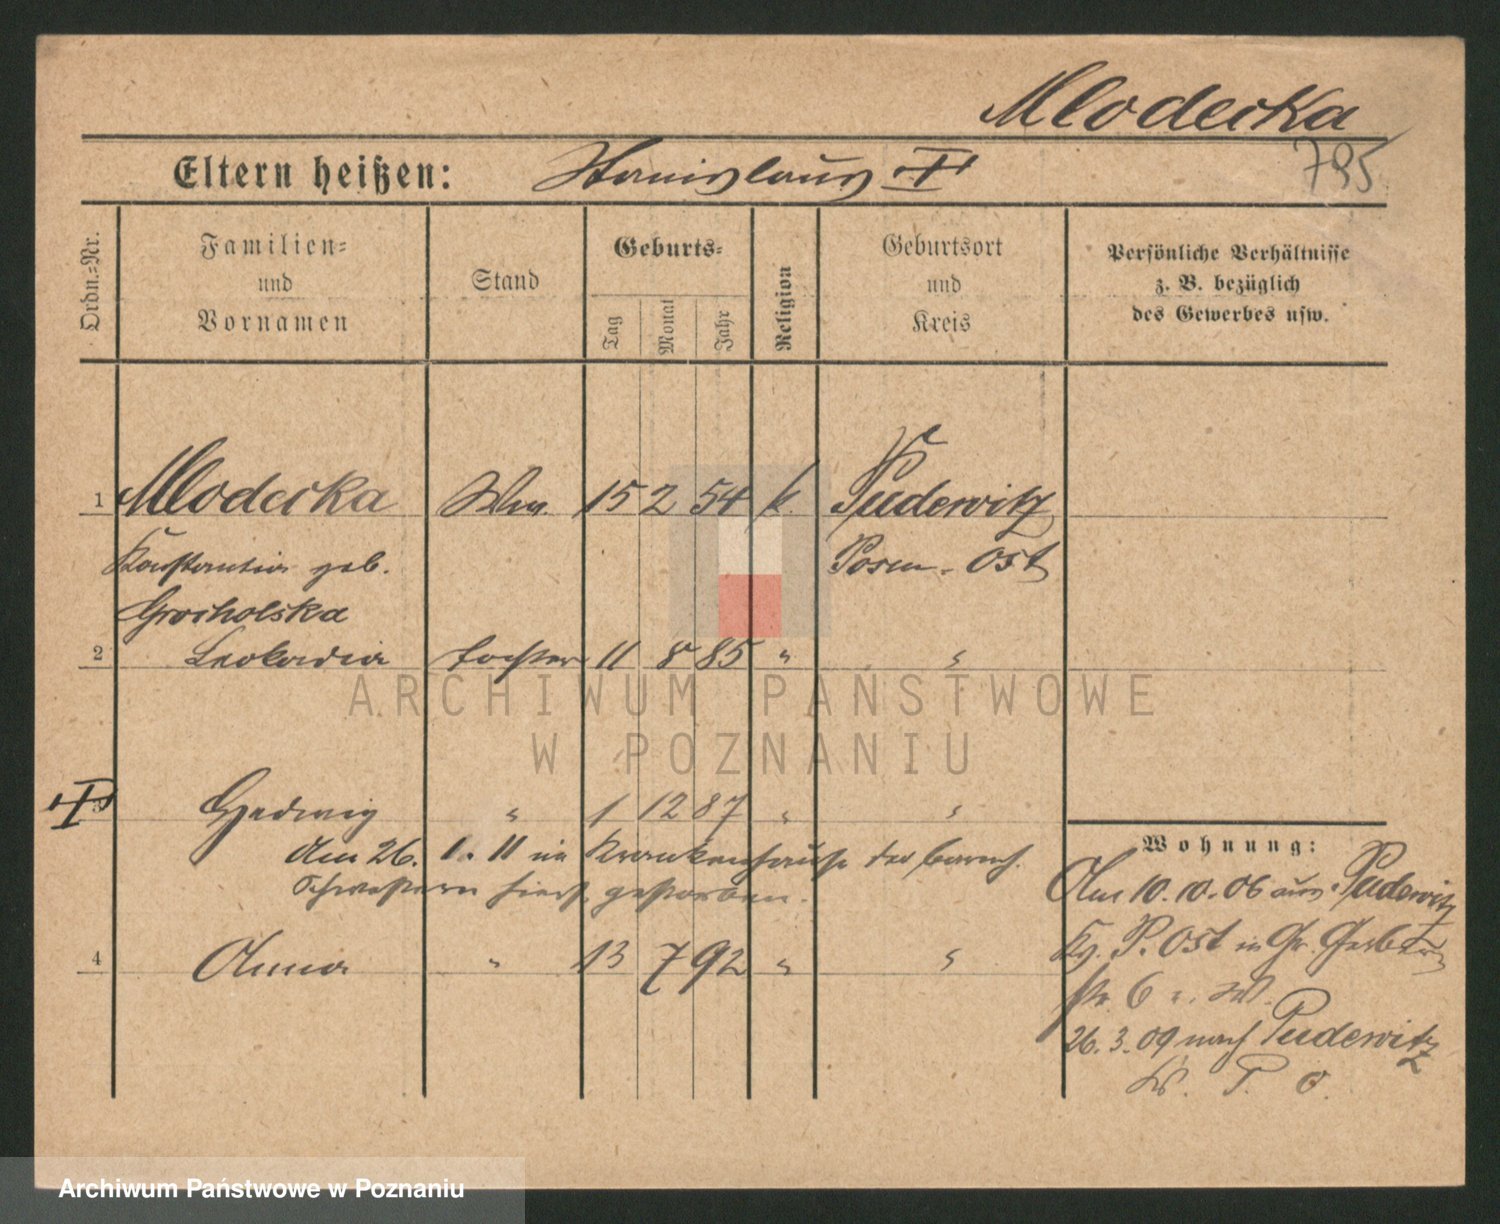 Mlodecka
795
Eltern heißen: Stanislaus †
Ordn.=Nr.
Familien=
und
Vornamen
Stand
Geburts=
Tag
Monat
Jahr
Religion
Geburtsort
und
Kreis
Persönliche Verhältnisse
z. B. bezüglich
des Gewerbes usw.
1 Mlodecka Ww. 15 2 54 k. Pudewitz
Konstantia geb. Posen-Ost
Grocholska
2 Leokadia Tochter 11 8 85 " "
ARCHIWUM PAŃSTWOWE
W POZNANIU
† 3 Hedwig " 1 12 87 " "
Am 26. 1. 11 im Krankenhause der barmh.
Schwestern hier gestorben.
4 Anna " 13 7 92 " "
Wohnung:
Am 10.10.06 aus Pudewitz
Kr. P. Ost in Gr. Gerber
str 6
26.3.09 nach Pudewitz
Kr. P. O.
Archiwum Państwowe w Poznaniu